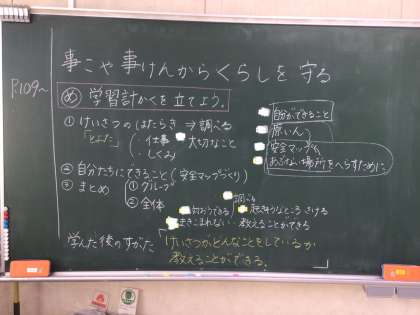 P.109~
事こや事けんからくらしを守る
め 学習計かくを立てよう。
①けいさつのはたらき → 調べる
・仕事 大切なこと
・しくみ
自分ができること
原いん
安全マップ
あぶない場所をへらすために
②自分たちにできること(安全マップづくり)
③まとめ ①グループ
②全体
調べる
さける
まきこまれない 教えることができる
学んだ後のすがた「けいさつがどんなことをしているか
教えることができる。」